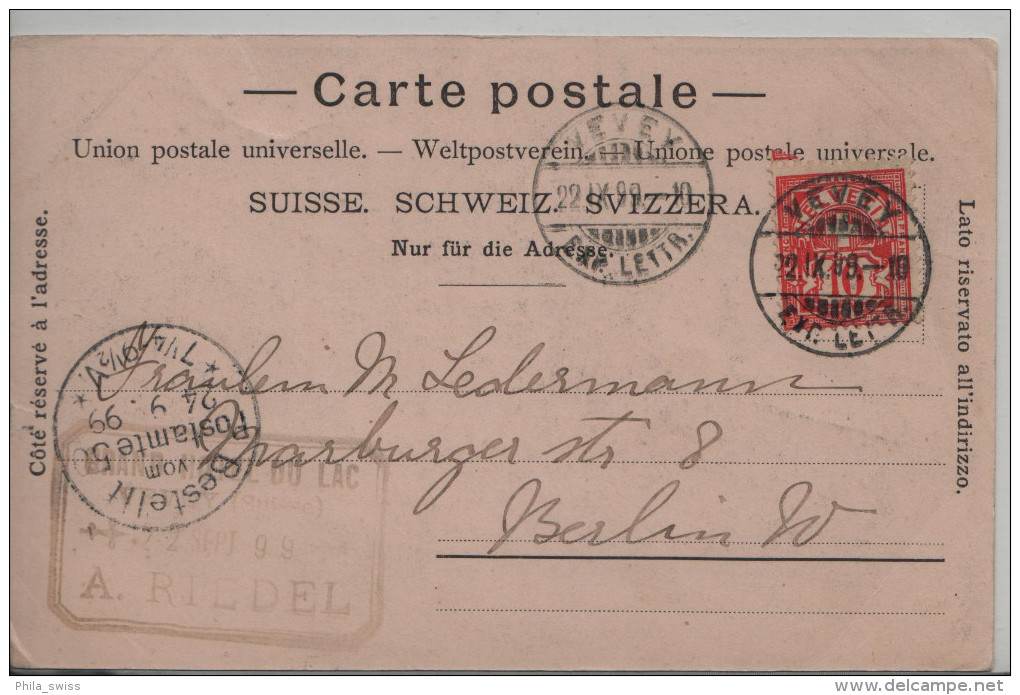 — Carte postale —
Union postale universelle. — Weltpostverein. — Unione postale universale.
SUISSE. SCHWEIZ. SVIZZERA.
Nur für die Adresse.
Côté réservé à l'adresse.
Lato riservato all'indirizzo.
VEVEY
22.IX.99.-10
EXP. LETTR.
HELVETIA
10
VEVEY
22.IX.99.-10
EXP. LETTR.
Fräulein M Ledermann
Marburger str 8
Berlin W
Bestellt
vom
Postamte 50
24 9 99
GRAND HOTEL DU LAC
22 SEPT 99
A. RIEDEL
Phila_swiss